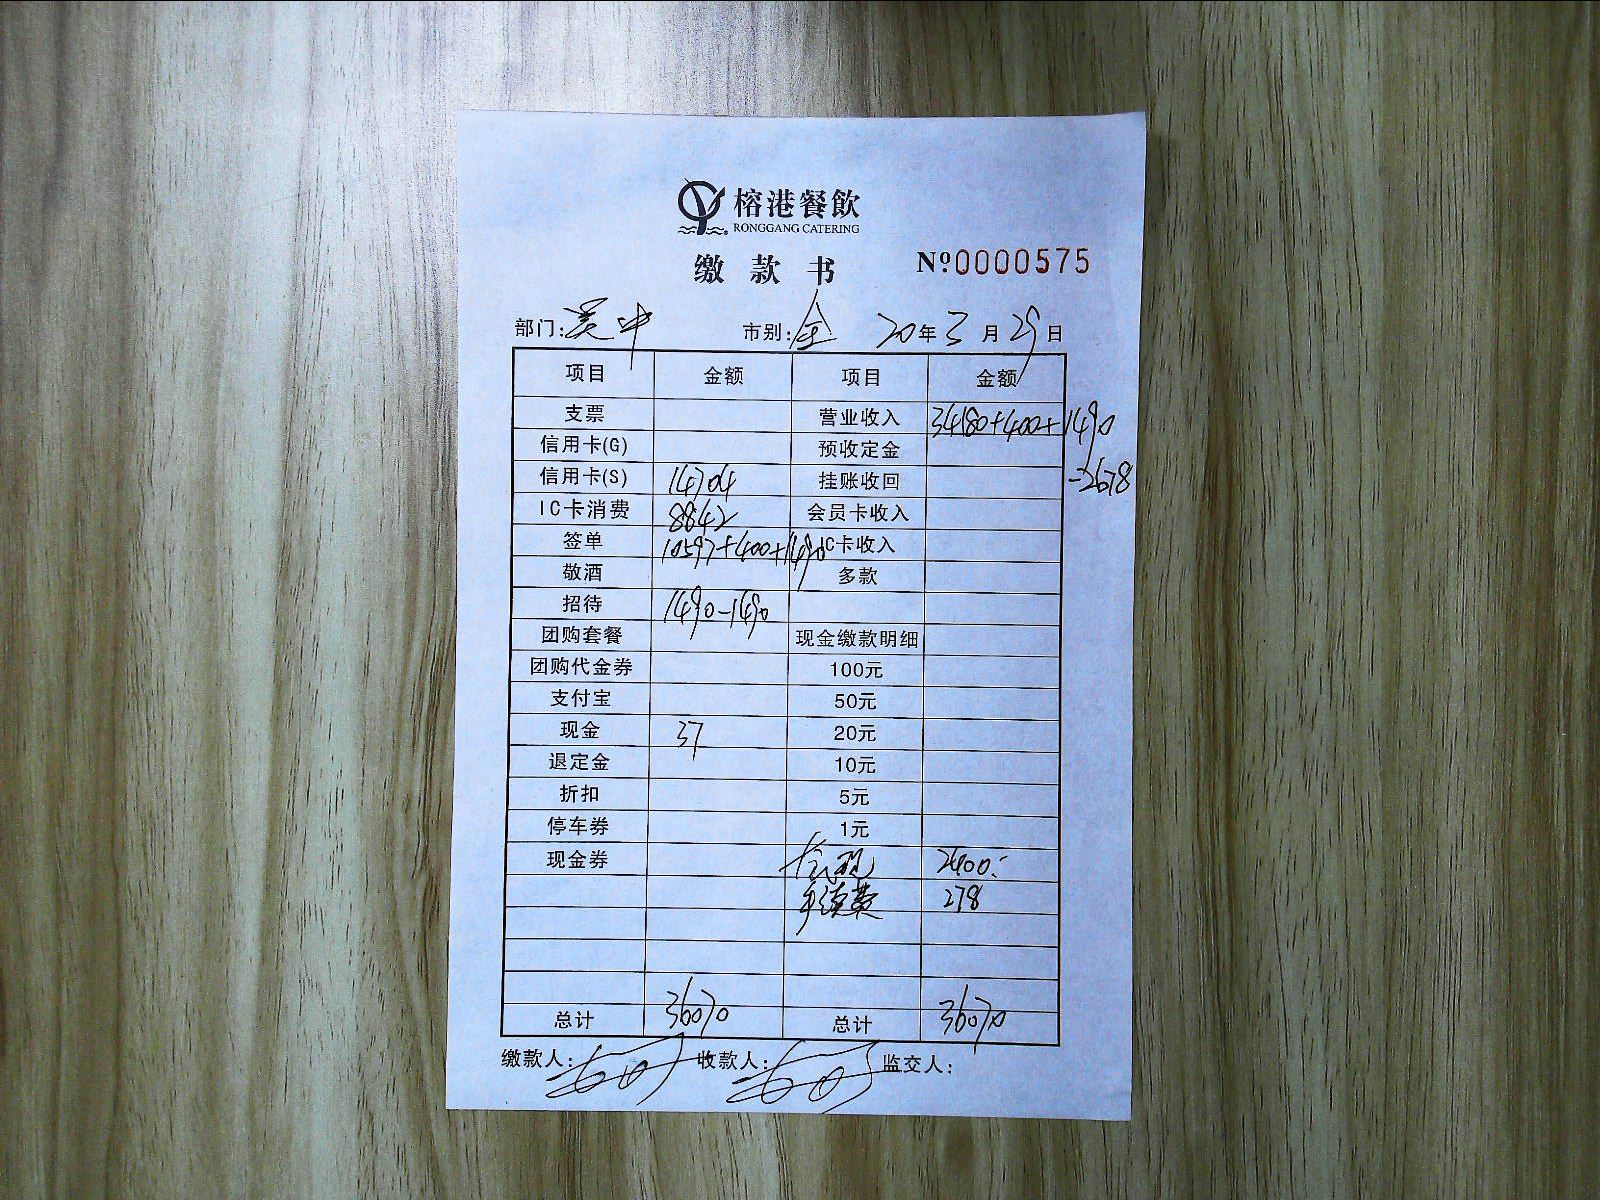 榕港餐飲
RONGGANG CATERING
缴款书 №0000575
部门:吴中 市别:全 20年3月29日
项目 金额 项目 金额
支票 营业收入 34180+400+1490
信用卡(G) 预收定金
信用卡(S) 14704 挂账收回 -2678
IC卡消费 8842 会员卡收入
签单 10597+400+1490 IC卡收入
敬酒 多款
招待 1490-1490
团购套餐 现金缴款明细
团购代金券 100元
支付宝 50元
现金 37 20元
退定金 10元
折扣 5元
停车券 1元
现金券 2400
手续费 278
总计 36070 总计 36070
缴款人: 收款人: 监交人: